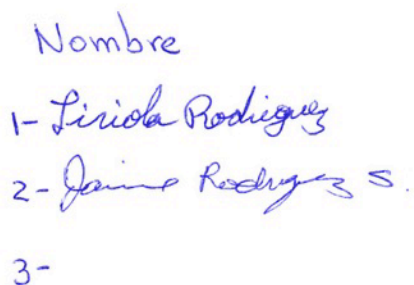 Nombre
1- Liriola Rodriguez
2- Jaime Rodriguez S.
3-